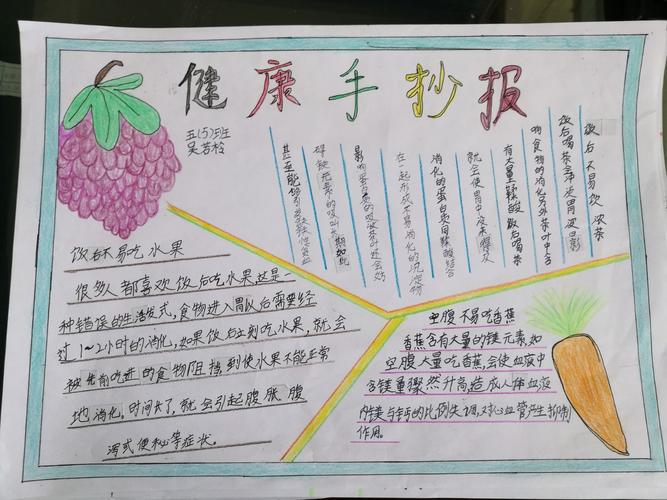 健康手抄报
五(5)班
吴若
饭后不易饮浓茶
饭后喝茶会冲淡胃液影
响食物的消化另外茶叶中含
有大量鞣酸饭后喝茶
就会使胃中没来
消化的蛋白质同鞣酸结合
在一起形成不易消化的沉淀物
影响蛋白质的吸收茶叶还会妨
碍铁元素的吸收长期如此
甚至能够引发缺铁性贫血
饭后不易吃水果
很多人都喜欢饭后吃水果,这是一
种错误的生活方式,食物进入胃以后需要经
过1~2小时的消化,如果饭后立刻吃水果,就会
被先前吃进的食物阻挡到使水果不能正常
地消化。时间长了,就会引起腹胀 腹
泻或便秘等症状。
空腹不易吃香蕉
香蕉含有大量的镁元素,如
空腹大量吃香蕉,会使血液中
含镁量骤然升高造成人体血液
内镁与钙的比例失调,对心血管产生抑制
作用。